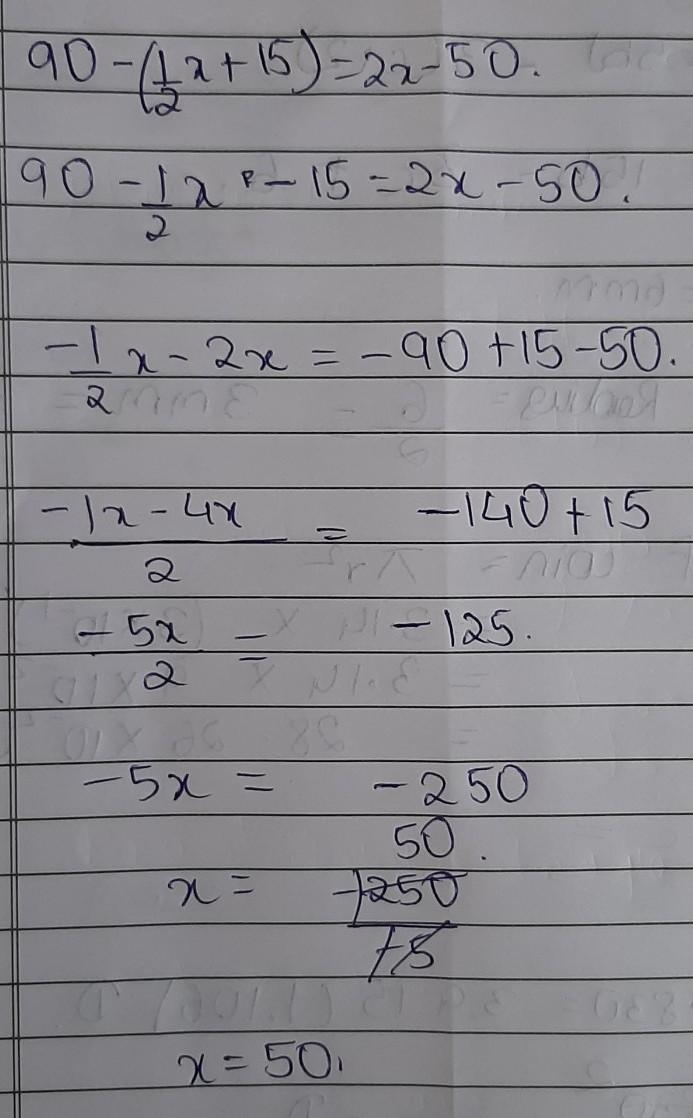 90 - (1/2 x + 15) = 2x - 50.
90 - 1/2 x - 15 = 2x - 50.
-1/2 x - 2x = -90 + 15 - 50.
(-1x - 4x)/2 = -140 + 15
-5x/2 = -125.
-5x = -250
50.
x = -250/-5
x = 50.